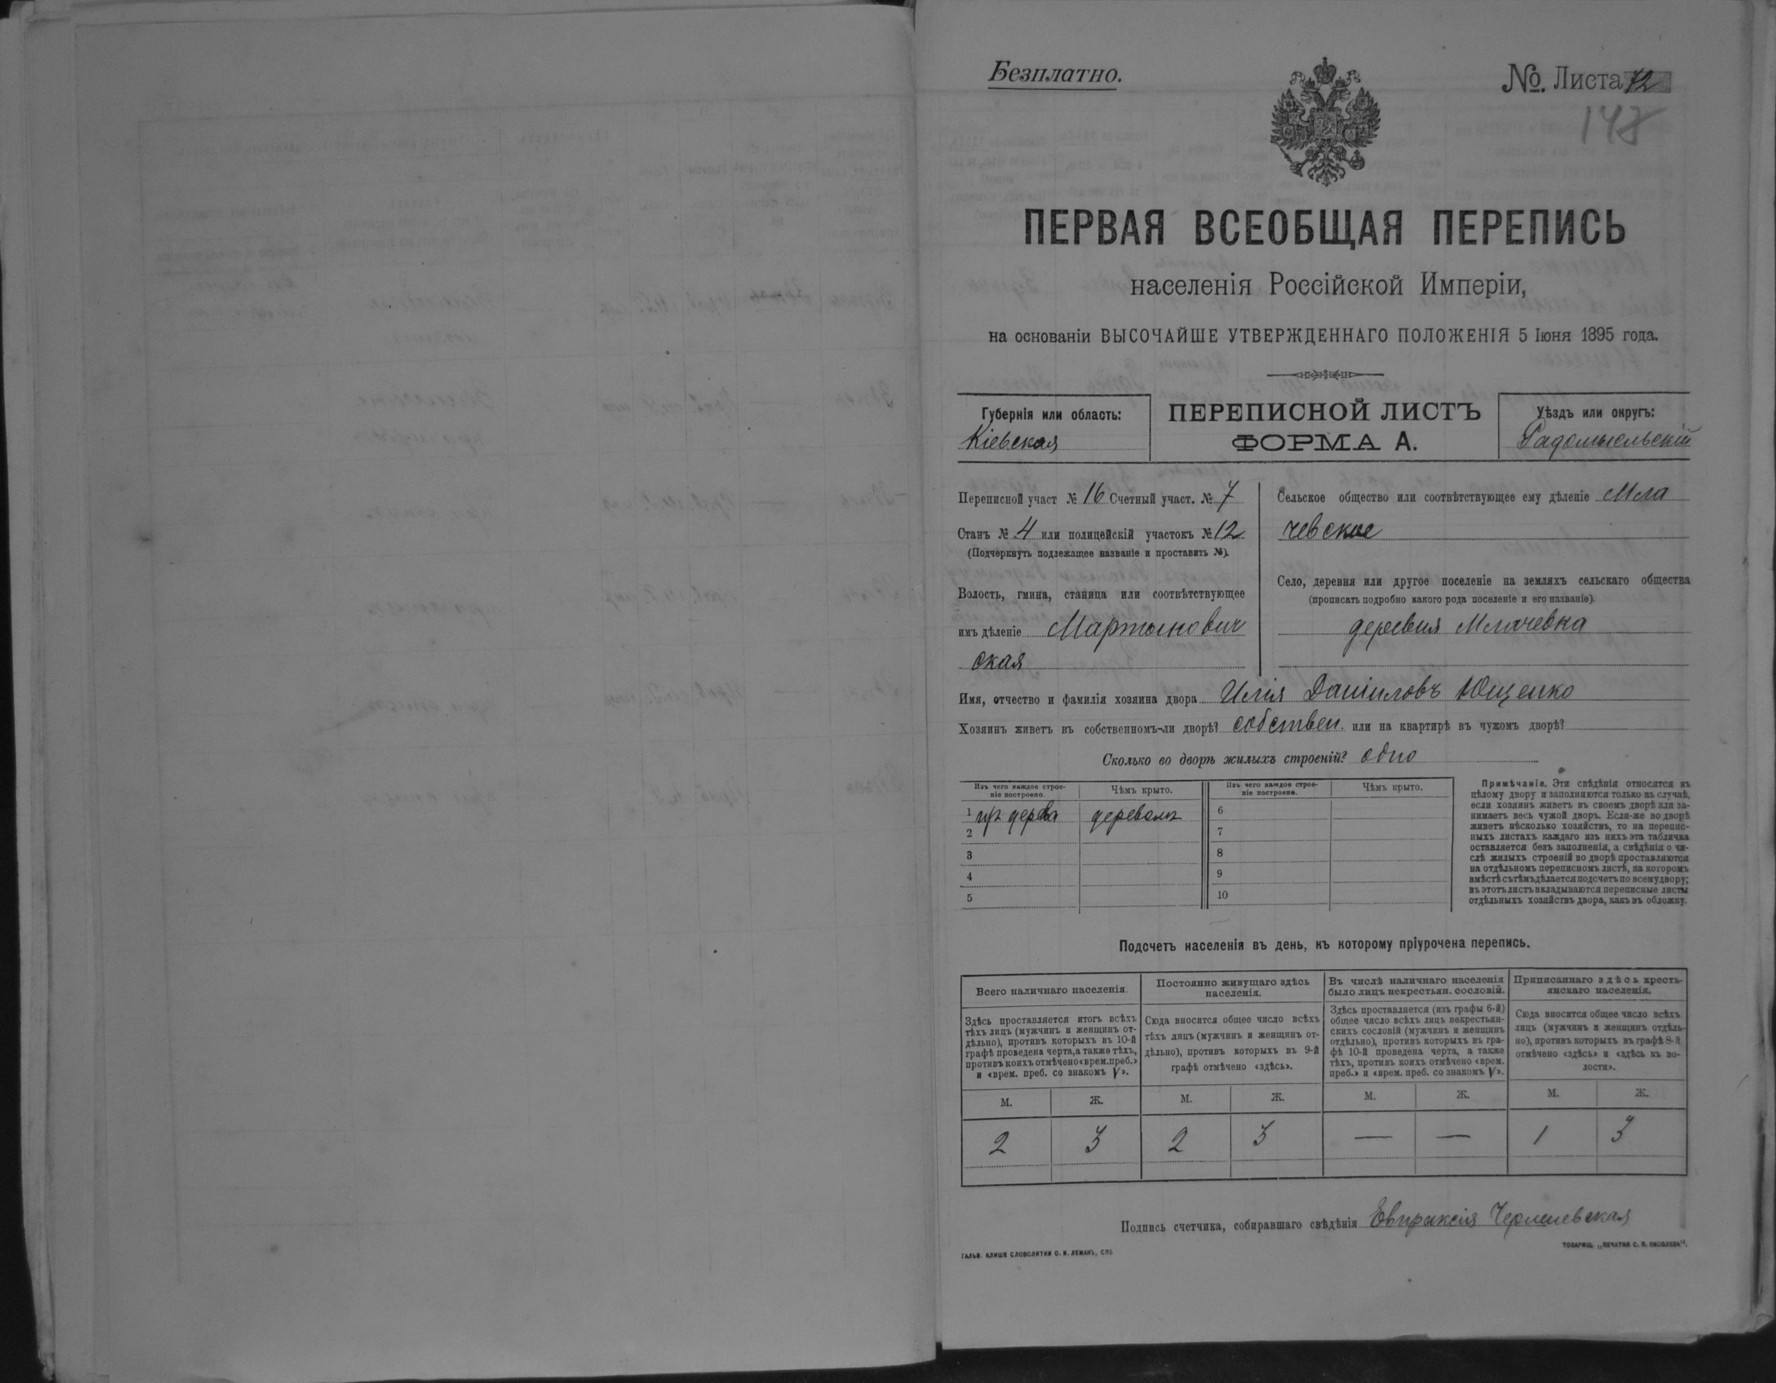 Безплатно.
№. Листа 12
148
ПЕРВАЯ ВСЕОБЩАЯ ПЕРЕПИСЬ
населенія Россійской Имперіи,
на основаніи ВЫСОЧАЙШЕ УТВЕРЖДЕННАГО ПОЛОЖЕНІЯ 5 Іюня 1895 года.
Губернія или область:
Кіевская
ПЕРЕПИСНОЙ ЛИСТЪ
ФОРМА А.
Уѣздъ или округъ:
Радомысльскій
Переписной участ № 16 Счетный участ. № 7
Станъ № 4 или полицейскій участокъ № 12
(Подчеркнуть подлежащее названіе и проставить №).
Волость, гмина, станица или соотвѣтствующее
имъ дѣленіе Мартынович
ская
Сельское общество или соотвѣтствующее ему дѣленіе Мла
чевское
Село, деревня или другое поселеніе на земляхъ сельскаго общества
(прописать подробно какого рода поселеніе и его названіе).
деревня Млачевка
Имя, отчество и фамилія хозяина двора Илія Даніиловъ Ющенко
Хозяинъ живетъ въ собственномъ-ли дворѣ? собствен. или на квартирѣ въ чужомъ дворѣ?
Сколько во дворѣ жилыхъ строеній? одно
Изъ чего каждое строе-
ніе построено.
Чѣмъ крыто.
Изъ чего каждое строе-
ніе построено.
Чѣмъ крыто.
1 изъ дерева деревомъ 6
2 7
3 8
4 9
5 10
Примѣчаніе. Эти свѣдѣнія относятся къ
цѣлому двору и заполняются только въ случаѣ,
если хозяинъ живетъ въ своемъ дворѣ или за-
нимаетъ весь чужой дворъ. Если-же во дворѣ
живетъ нѣсколько хозяйствъ, то на перепис-
ныхъ листахъ каждаго изъ нихъ эта табличка
оставляется безъ заполненія, а свѣдѣнія о чи-
слѣ жилыхъ строеній во дворѣ проставляются
на отдѣльномъ переписномъ листѣ, на которомъ
вмѣстѣ съ тѣмъ дѣлается подсчетъ по всему двору;
въ этотъ листъ вкладываются переписные листы
отдѣльныхъ хозяйствъ двора, какъ въ обложку.
Подсчетъ населенія въ день, къ которому пріурочена перепись.
Всего наличнаго населенія.
Здѣсь проставляется итогъ всѣхъ
тѣхъ лицъ (мужчинъ и женщинъ от-
дѣльно), противъ которыхъ въ 10-й
графѣ проведена черта, а также тѣхъ,
противъ коихъ отмѣчено «врем. преб.»
и «врем. преб. со знакомъ V».
Постоянно живущаго здѣсь
населенія.
Сюда вносится общее число всѣхъ
тѣхъ лицъ (мужчинъ и женщинъ от-
дѣльно), противъ которыхъ въ 9-й
графѣ отмѣчено «здѣсь».
Въ числѣ наличнаго населенія
было лицъ некрестьян. сословій.
Здѣсь проставляется (изъ графы 6-й)
общее число всѣхъ лицъ некрестьян-
скихъ сословій (мужчинъ и женщинъ
отдѣльно), противъ которыхъ въ гра-
фѣ 10-й проведена черта, а также
тѣхъ, противъ коихъ отмѣчено «врем.
преб.» и «врем. преб. со знакомъ V».
Приписаннаго здѣсь кресть-
янскаго населенія.
Сюда вносится общее число всѣхъ
лицъ (мужчинъ и женщинъ отдѣль-
но), противъ которыхъ въ графѣ 8-й
отмѣчено «здѣсь» и «здѣсь въ во-
лости».
М. Ж. М. Ж. М. Ж. М. Ж.
2 3 2 3 — — 1 3
Подпись счетчика, собиравшаго свѣдѣнія Евпраксія
ГАЛЬВ. КЛИШЕ СЛОВОЛИТНИ О. И. ЛЕМАНЪ, СПБ.
ТОВАРИЩ. „ПЕЧАТНЯ С. П. ЯКОВЛЕВА“.